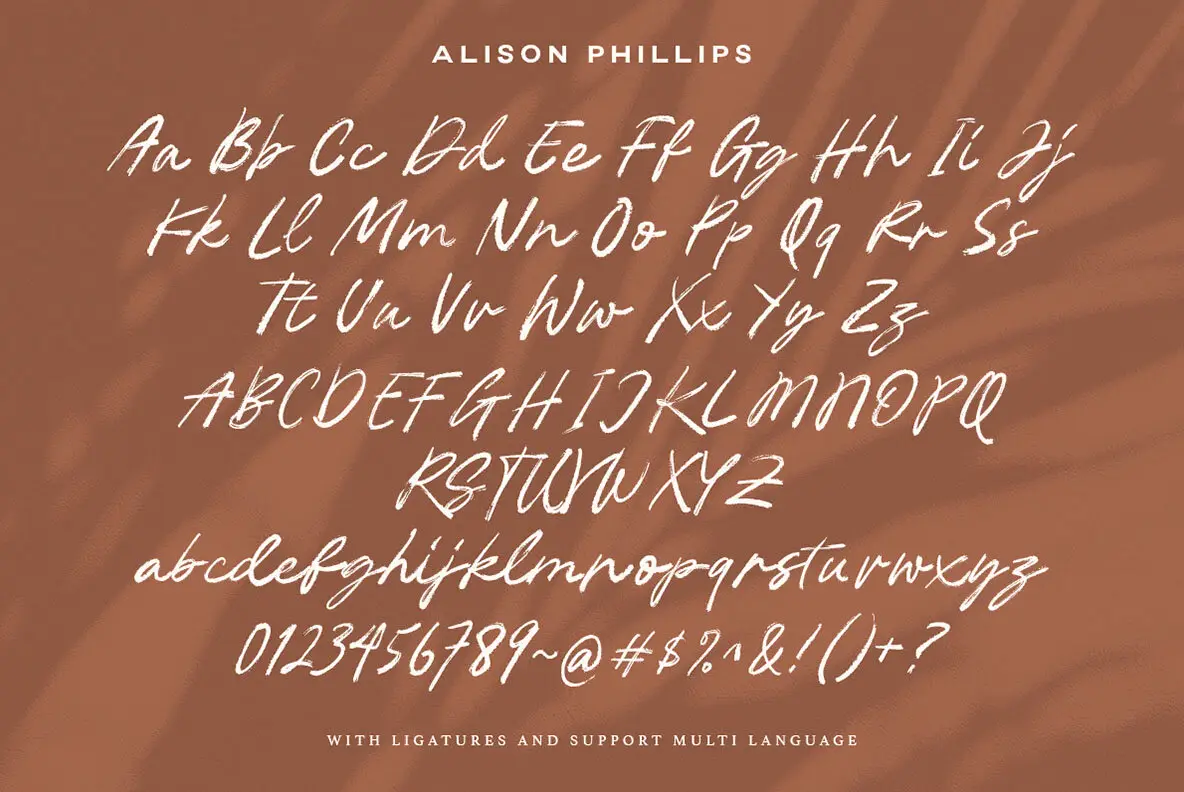 ALISON PHILLIPS
Aa Bb Cc Dd Ee Ff Gg Hh Ii Jj
Kk Ll Mm Nn Oo Pp Qq Rr Ss
Tt Uu Vv Ww Xx Yy Zz
ABCDEFGHIJKLMNOPQ
RSTUVWXYZ
abcdefghijklmnopqrstuvwxyz
0123456789~@#$%^&!()+?
WITH LIGATURES AND SUPPORT MULTI LANGUAGE